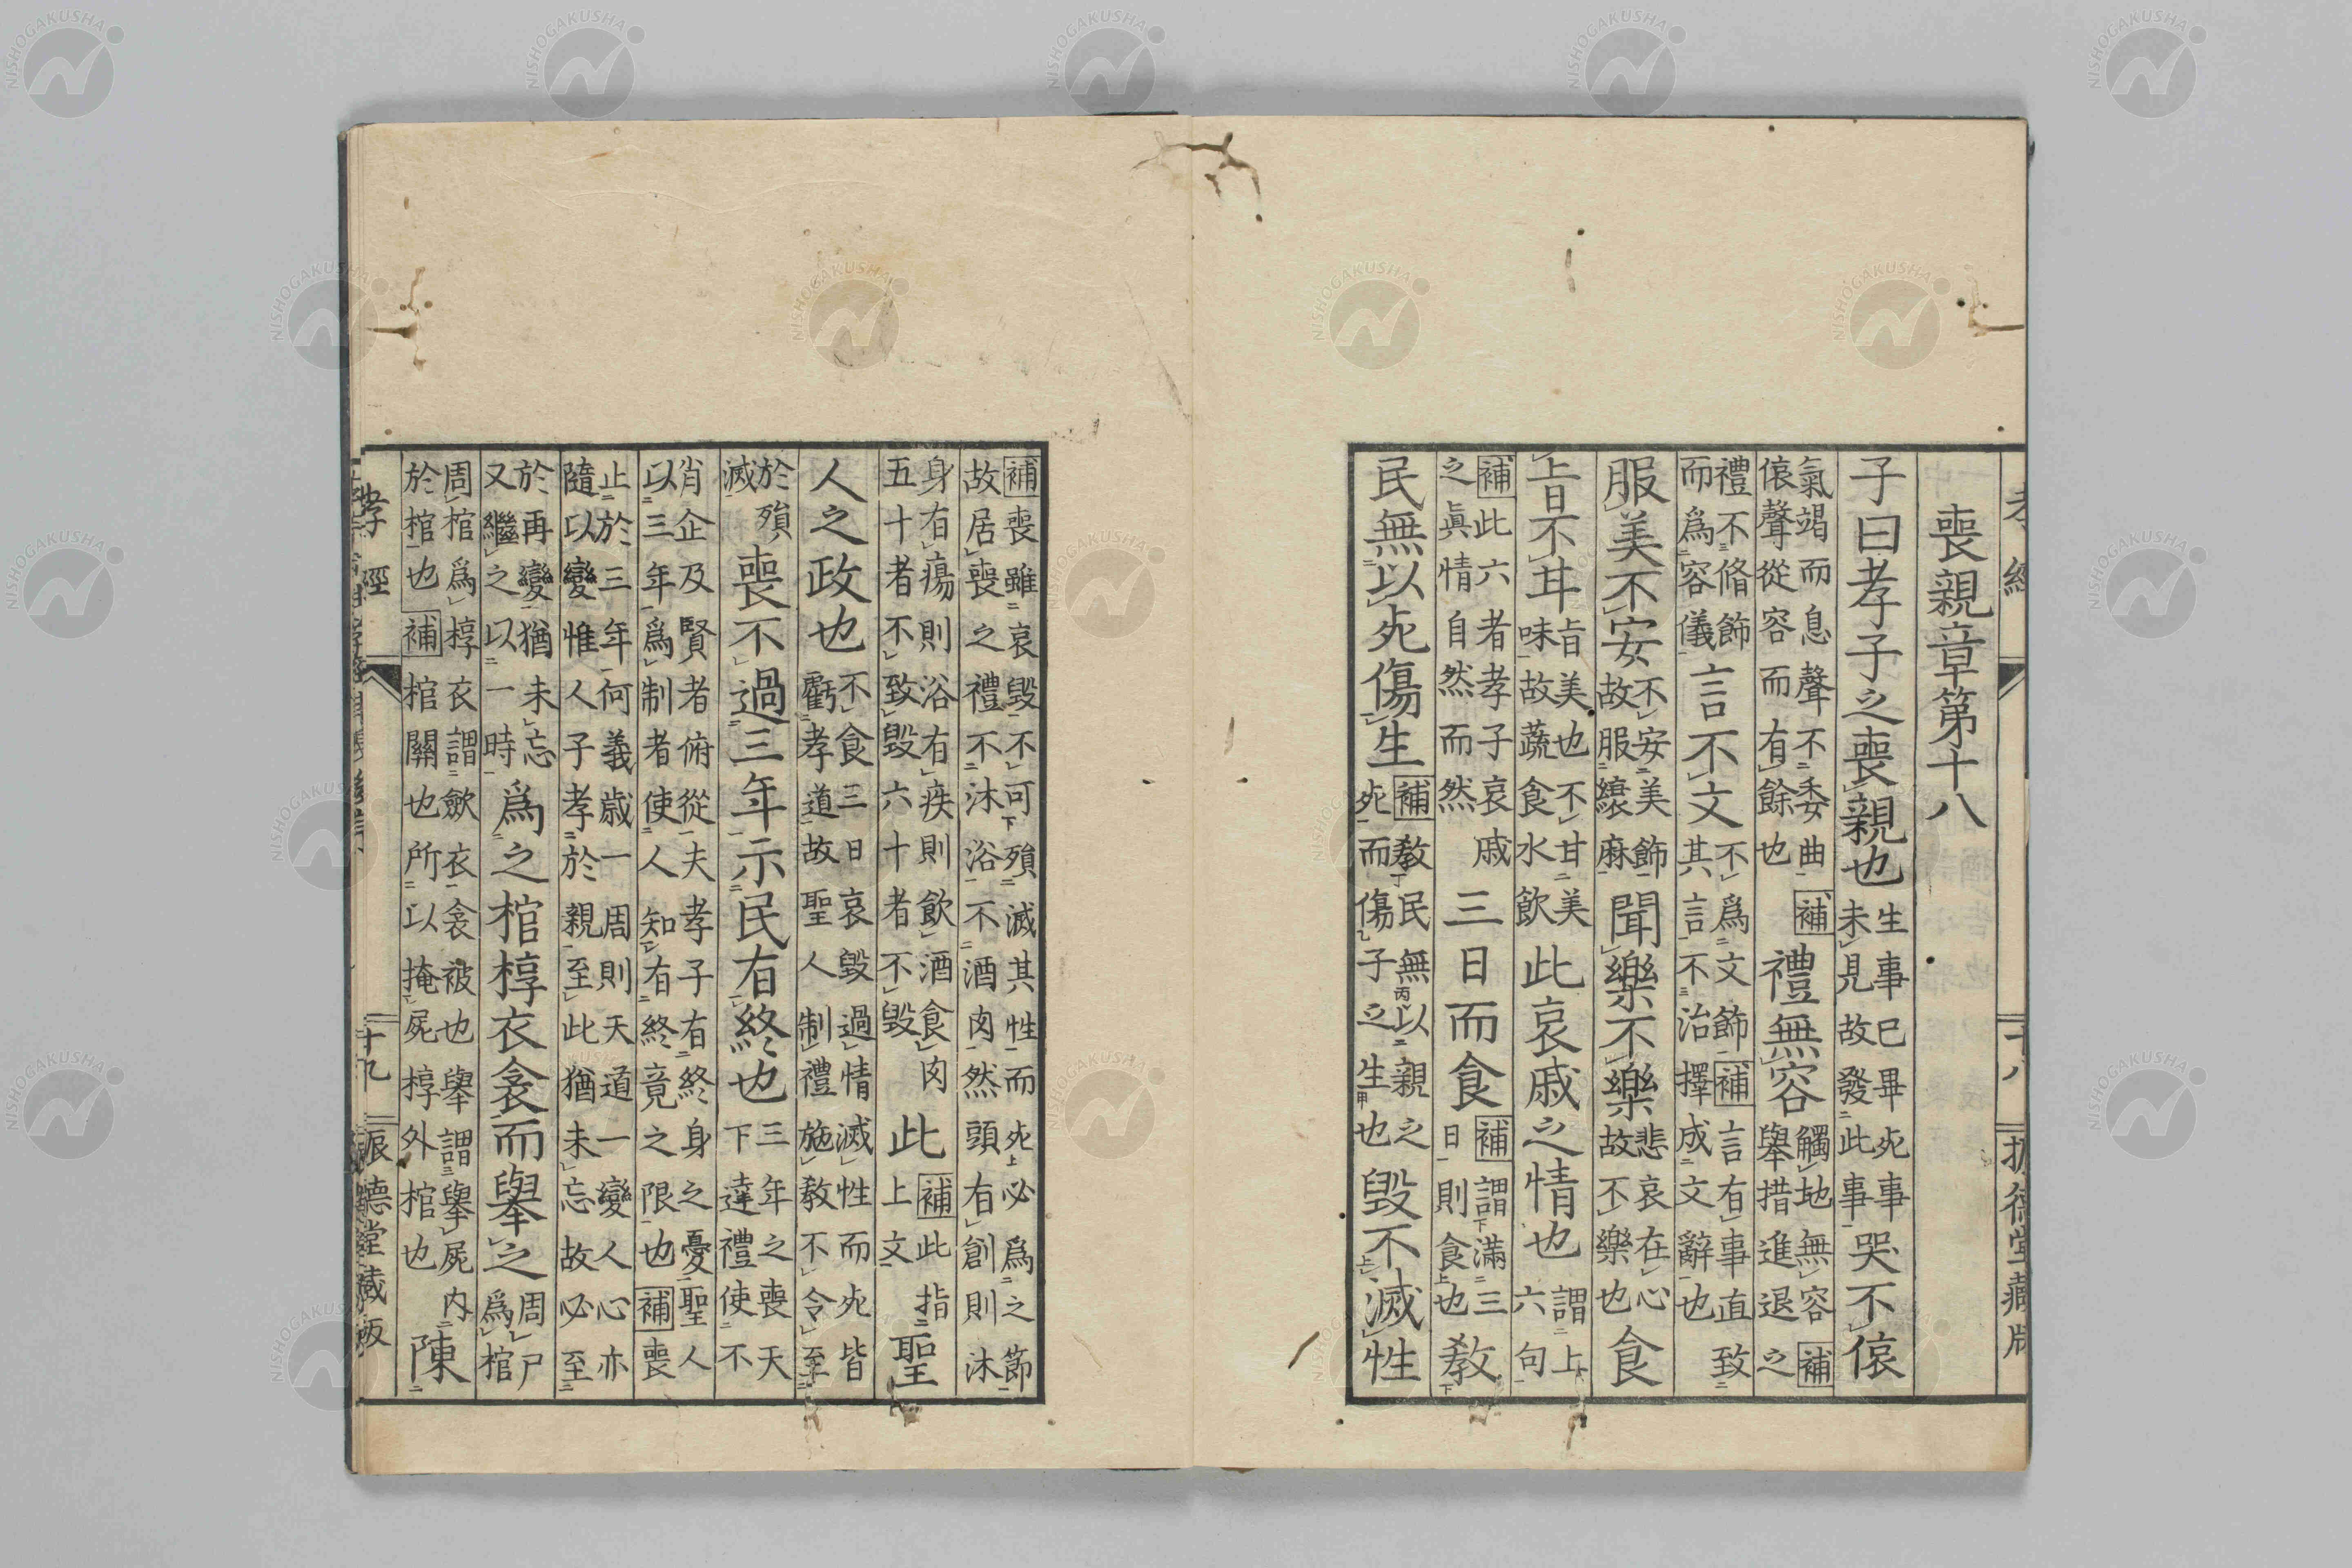 孝經 十八 振德堂藏版
喪親章第十八
子曰孝子之喪親也生事已畢死事未見故發此事哭不偯
氣竭而息聲不委曲補偯聲從容而有餘也禮無容觸地無容補舉措進退之
禮不脩飾而爲容儀言不文不爲文飾補言有事直致其言不治擇成文辭也
服美不安不安美飾故服縗麻聞樂不樂悲哀在心故不樂也食
旨不甘旨美也不甘美味故蔬食水飮此哀戚之情也謂上六句
補此六者孝子哀戚之眞情自然而然三日而食補謂滿三日則食也教
民無以死傷生補教民無以親之死而傷子之生也毀不滅性
補喪雖哀毀不可殞滅其性而死必爲之節故居喪之禮不沐浴不酒肉然頭有創則沐
身有瘍則浴有疾則飮酒食肉五十者不致毀六十者不毀此補此指上文聖
人之政也不食三日哀毀過情滅性而死皆虧孝道故聖人制禮施教不令至
於殞滅喪不過三年示民有終也三年之喪天下達禮使不
肖企及賢者俯從夫孝子有終身之憂聖人以三年爲制者使人知有終竟之限也補喪
止於三年何義歲一周則天道一變人心亦隨以變惟人子孝於親至此猶未忘故必至
於再變猶未忘又繼之以一時爲之棺椁衣衾而舉之周尸爲棺
周棺爲椁衣謂歛衣衾被也舉謂舉屍內於棺也補棺關也所以掩屍椁外棺也陳
孝經 十九 振德堂藏版
NISHOGAKUSHA